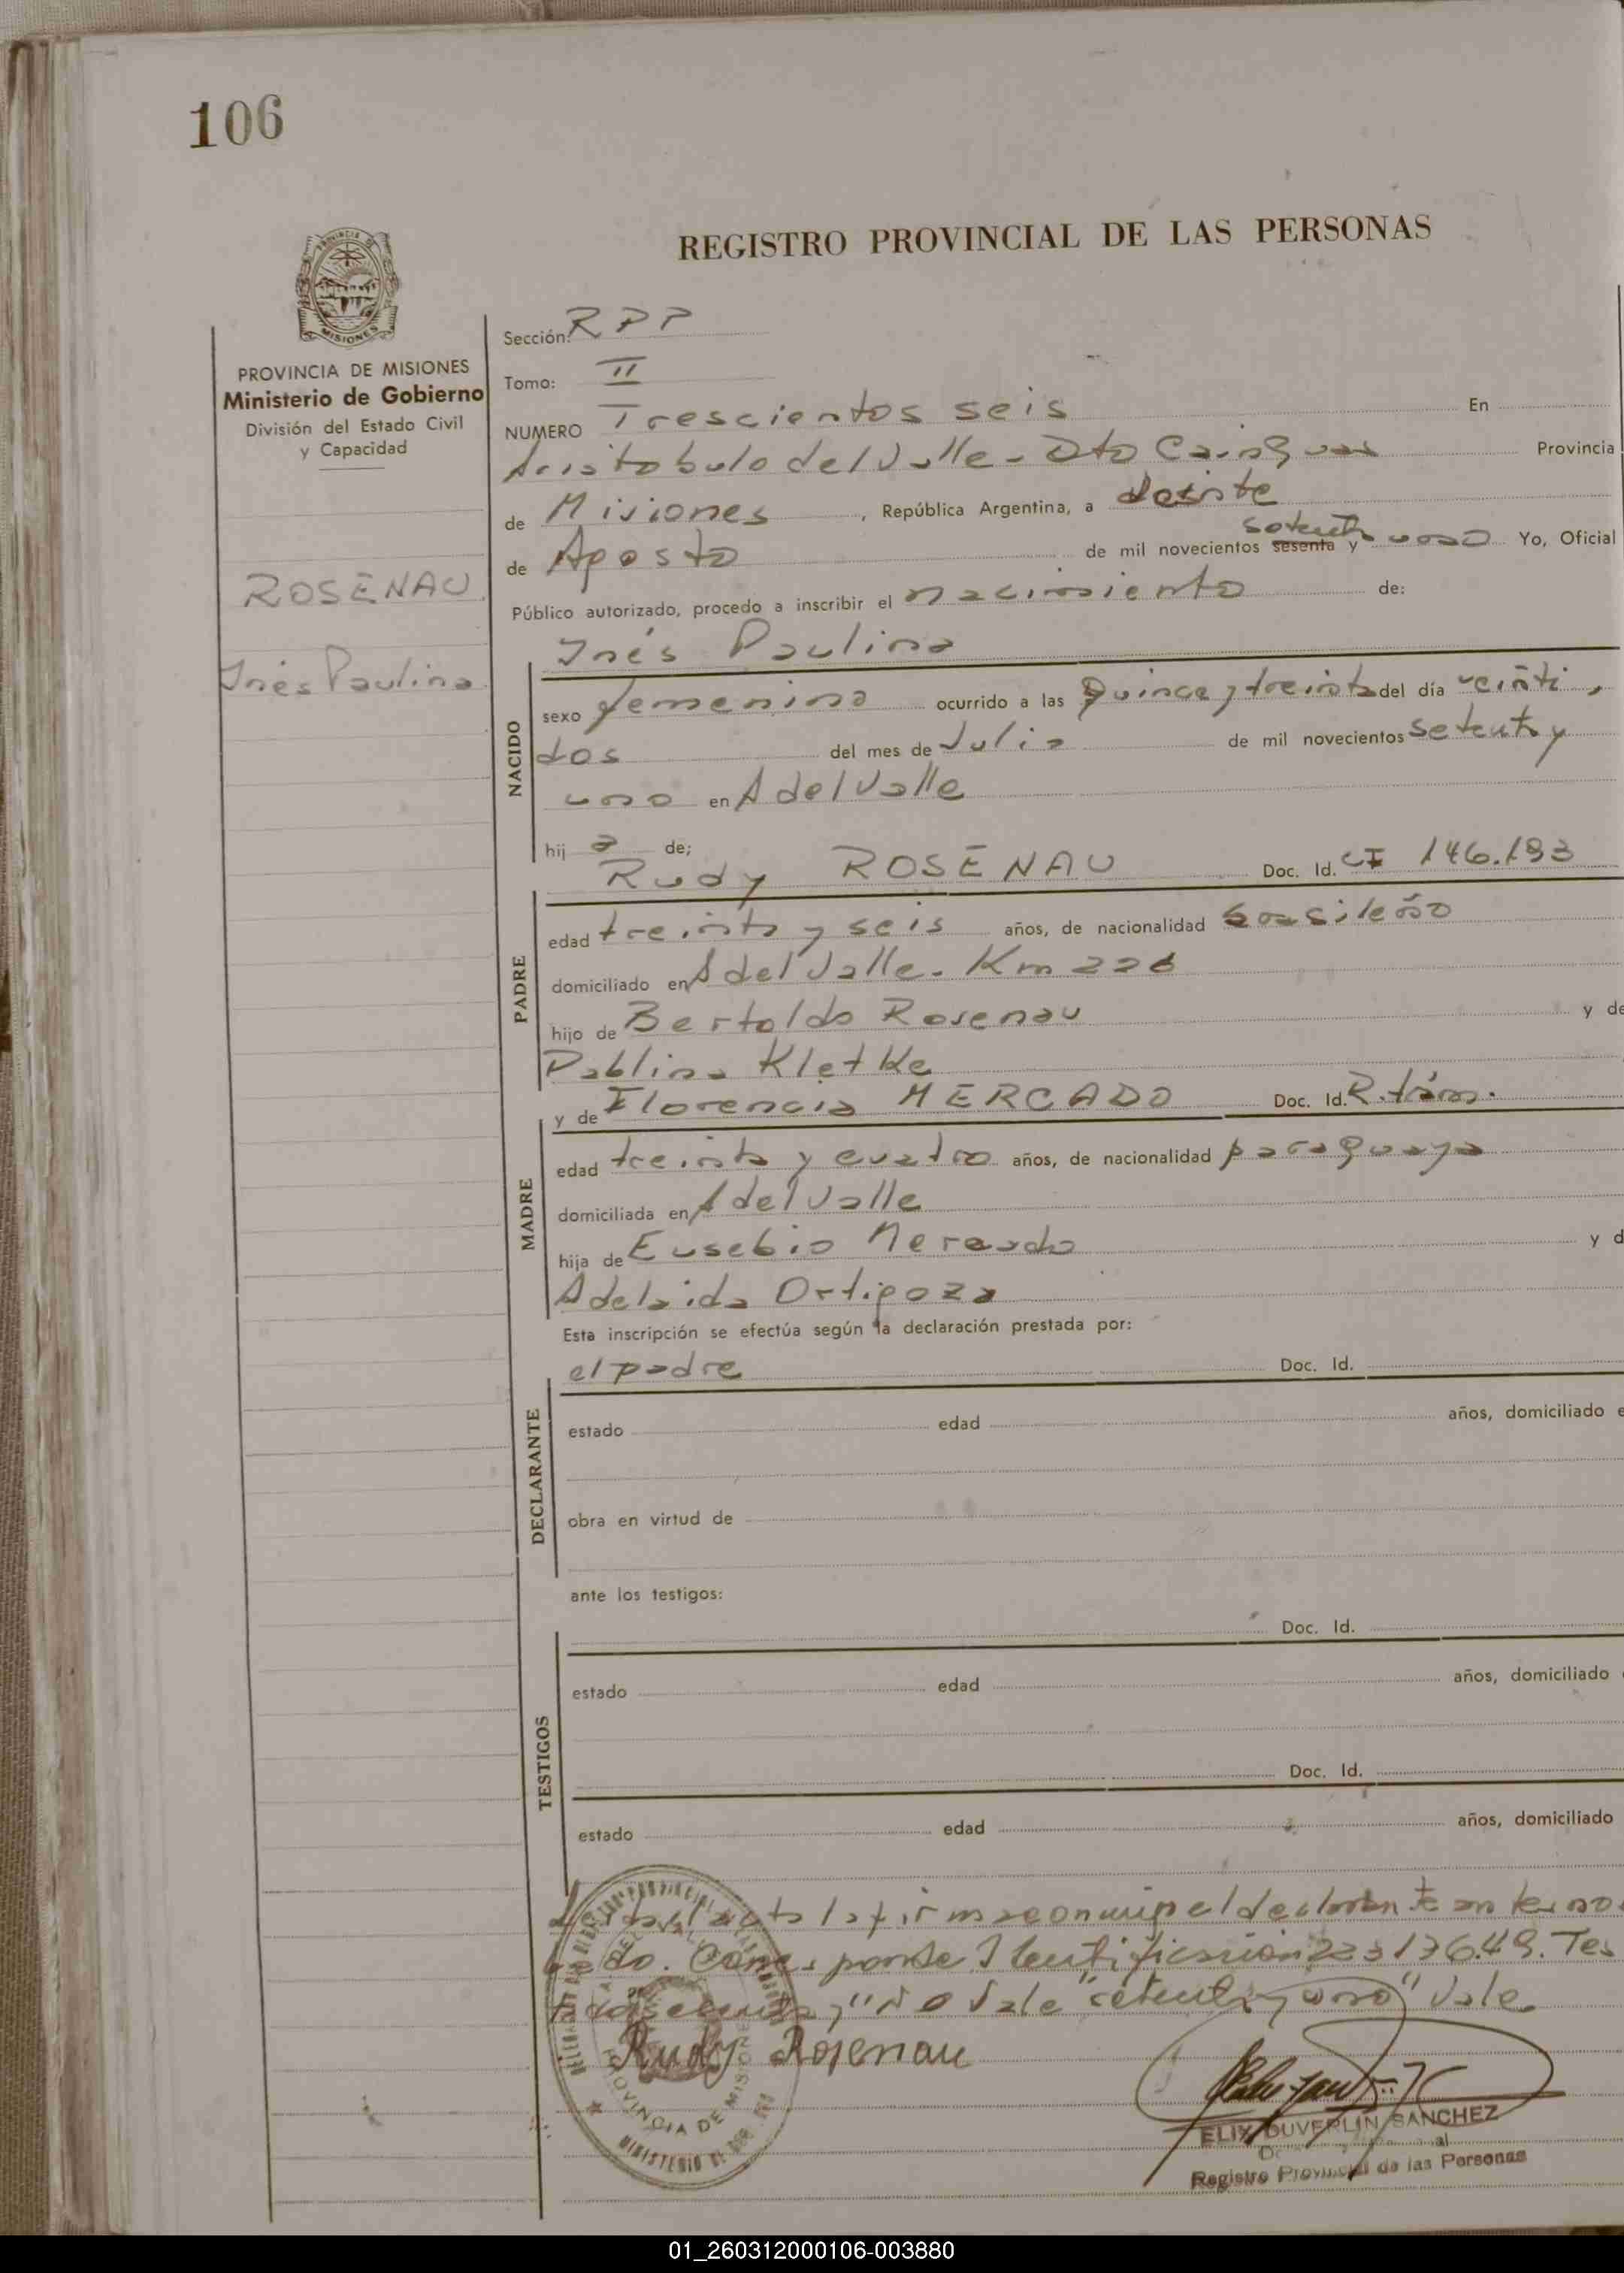 106
REGISTRO PROVINCIAL DE LAS PERSONAS
MISIONES
PROVINCIA DE MISIONES
Ministerio de Gobierno
División del Estado Civil
y Capacidad
ROSENAU
Inés Paulina
Sección: RPP
Tomo: II
NUMERO Trescientos seis En
Aristobulo del Valle - Dto Cainguas Provincia
de Misiones, República Argentina, a
de Agosto de mil novecientos sesenta y setenta uno Yo, Oficial
Público autorizado, procedo a inscribir el nacimiento de:
Inés Paulina
NACIDO
sexo femenino ocurrido a las Quince y treinta del día veinti
dos del mes de Julio de mil novecientos setenta y
uno en A del Valle
hij a de;
Rudy ROSENAU Doc. Id. CI 146.193
PADRE
edad treinta y seis años, de nacionalidad brasileño
domiciliado en A del Valle. Km 226
hijo de Bertoldo Rosenau y de
Pablina Kletke
y de Florencia MERCADO Doc. Id. R. trám.
MADRE
edad treinta y cuatro años, de nacionalidad paraguaya
domiciliada en A del Valle
hija de Eusebio Mercado y d
Adelaida Ortigoza
Esta inscripción se efectúa según la declaración prestada por:
el padre Doc. Id.
DECLARANTE
estado edad años, domiciliado e
obra en virtud de
ante los testigos:
Doc. Id.
TESTIGOS
estado edad años, domiciliado
Doc. Id.
estado edad años, domiciliado
acta la firma conmigo el declarante
Corresponde Identificación
No Vale "setenta y uno" Vale
Rudy Rosenau
PROVINCIA DE MISIONES
MINISTERIO DE GOB.
ELIX DUVERLIN SANCHEZ
Registro Provincial de las Personas
01_260312000106-003880